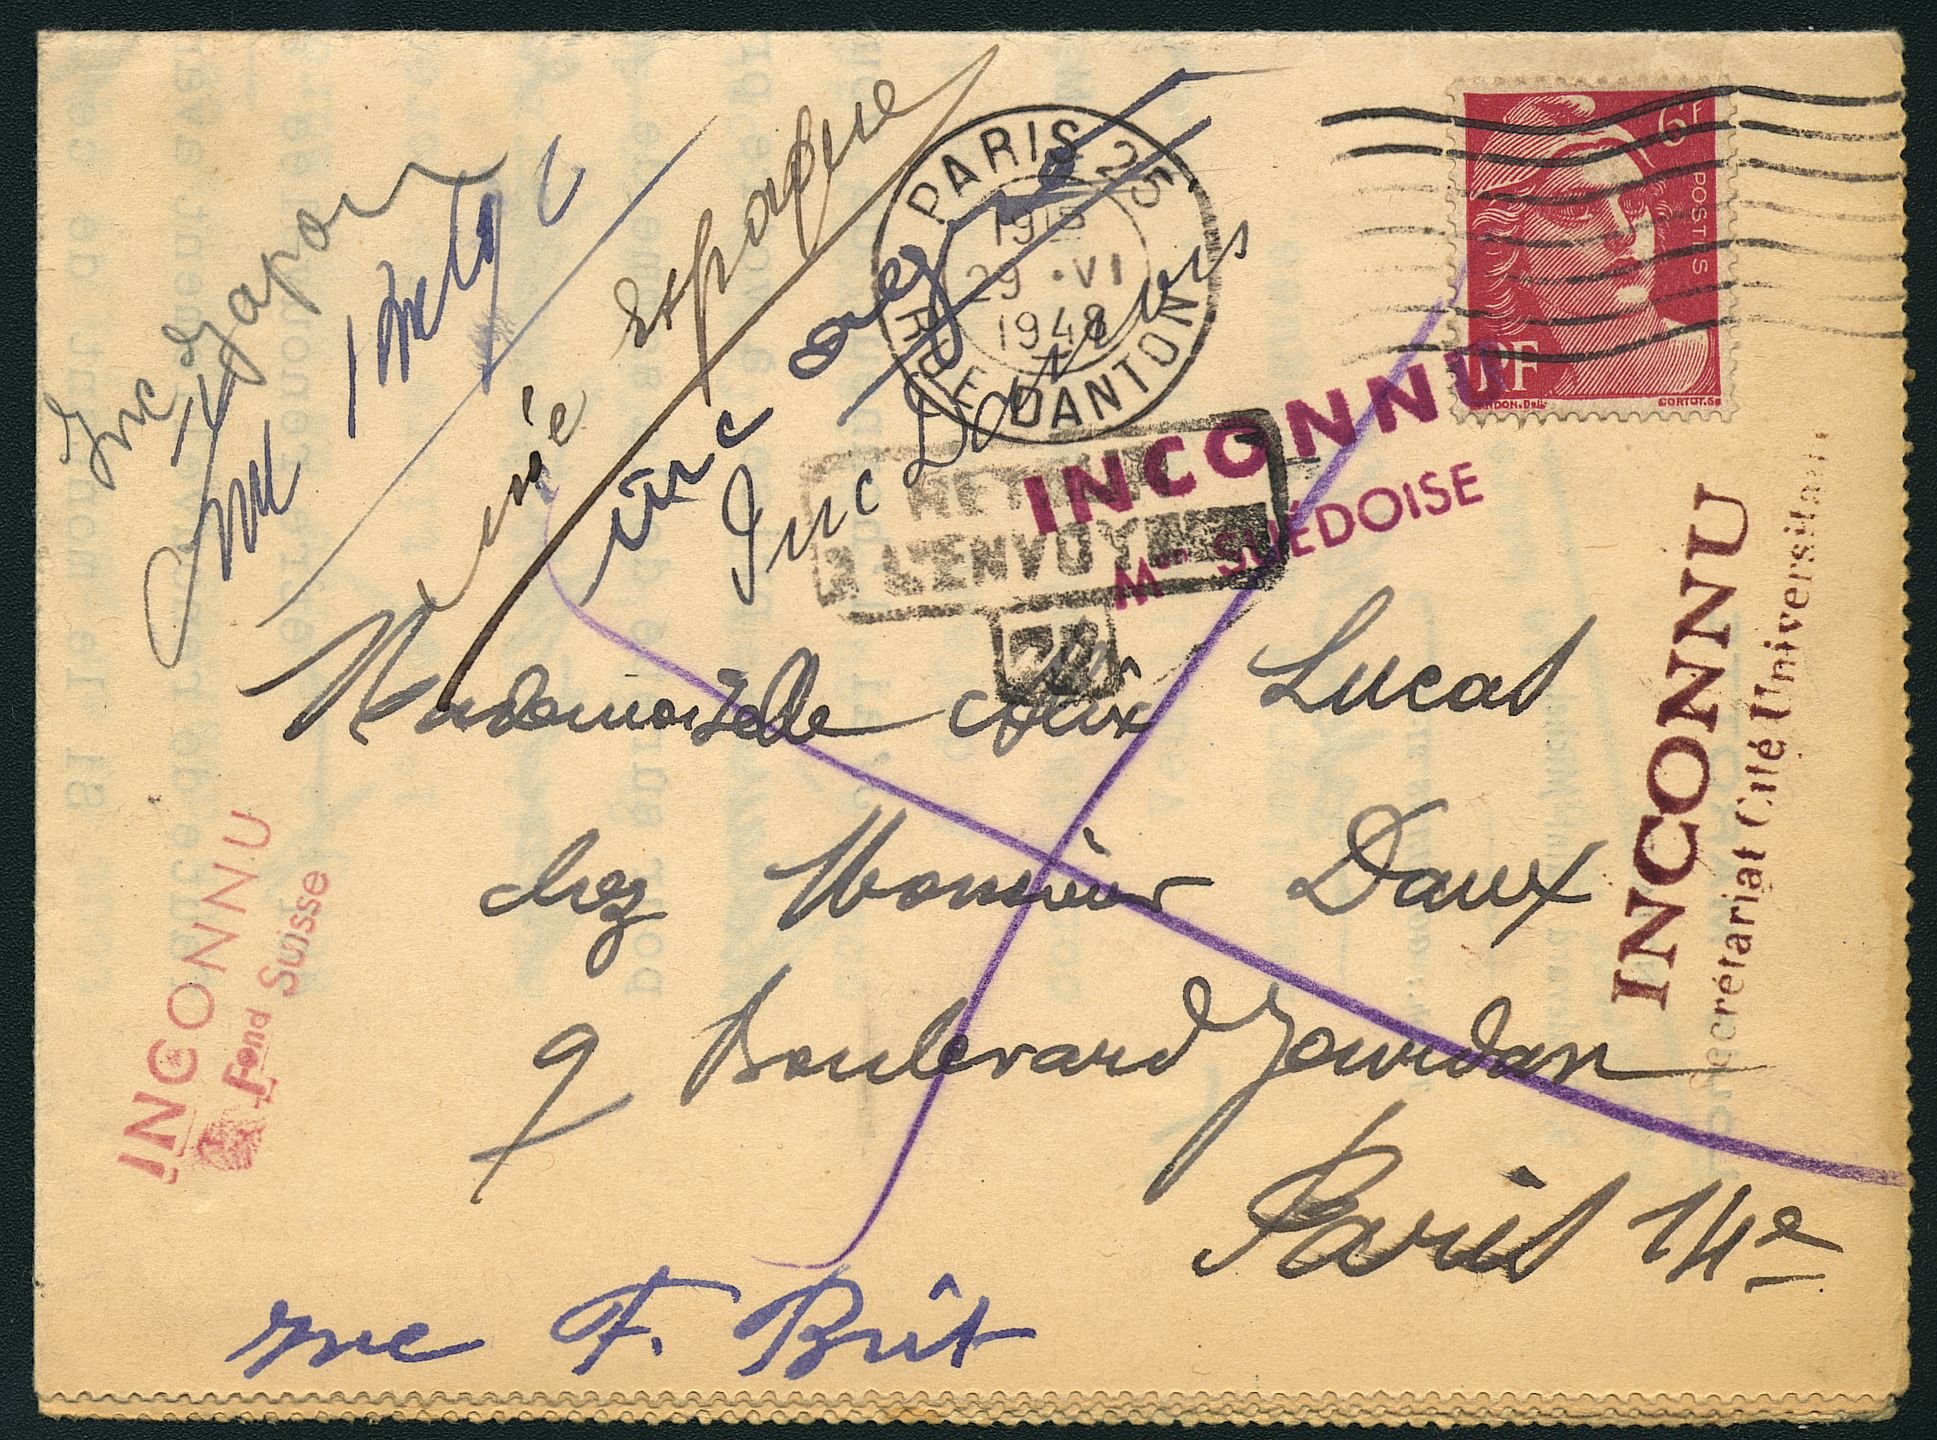 Inc Japon
Inc Belge
Inc Espagne
inc Argine
Inc Danois
PARIS 25
19 15
29 · VI
1948
R. DE DANTON
6F
POSTES
RF
GANDON. Del.
CORTOT. Sc
RETOUR
A L'ENVOYEUR
INCONNU
Mon SUÉDOISE
INCONNU
Secrétariat Cité Universitaire
INCONNU
Fond Suisse
Mademoiselle Lucas
chez Monsieur Daux
9 Boulevard Jourdan
Paris 14e
Inc F. Brit